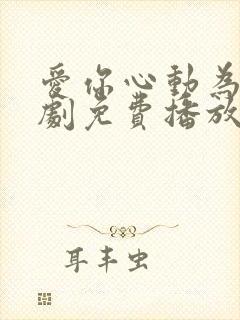 愛你心動為
劇免費播放
耳丰虫